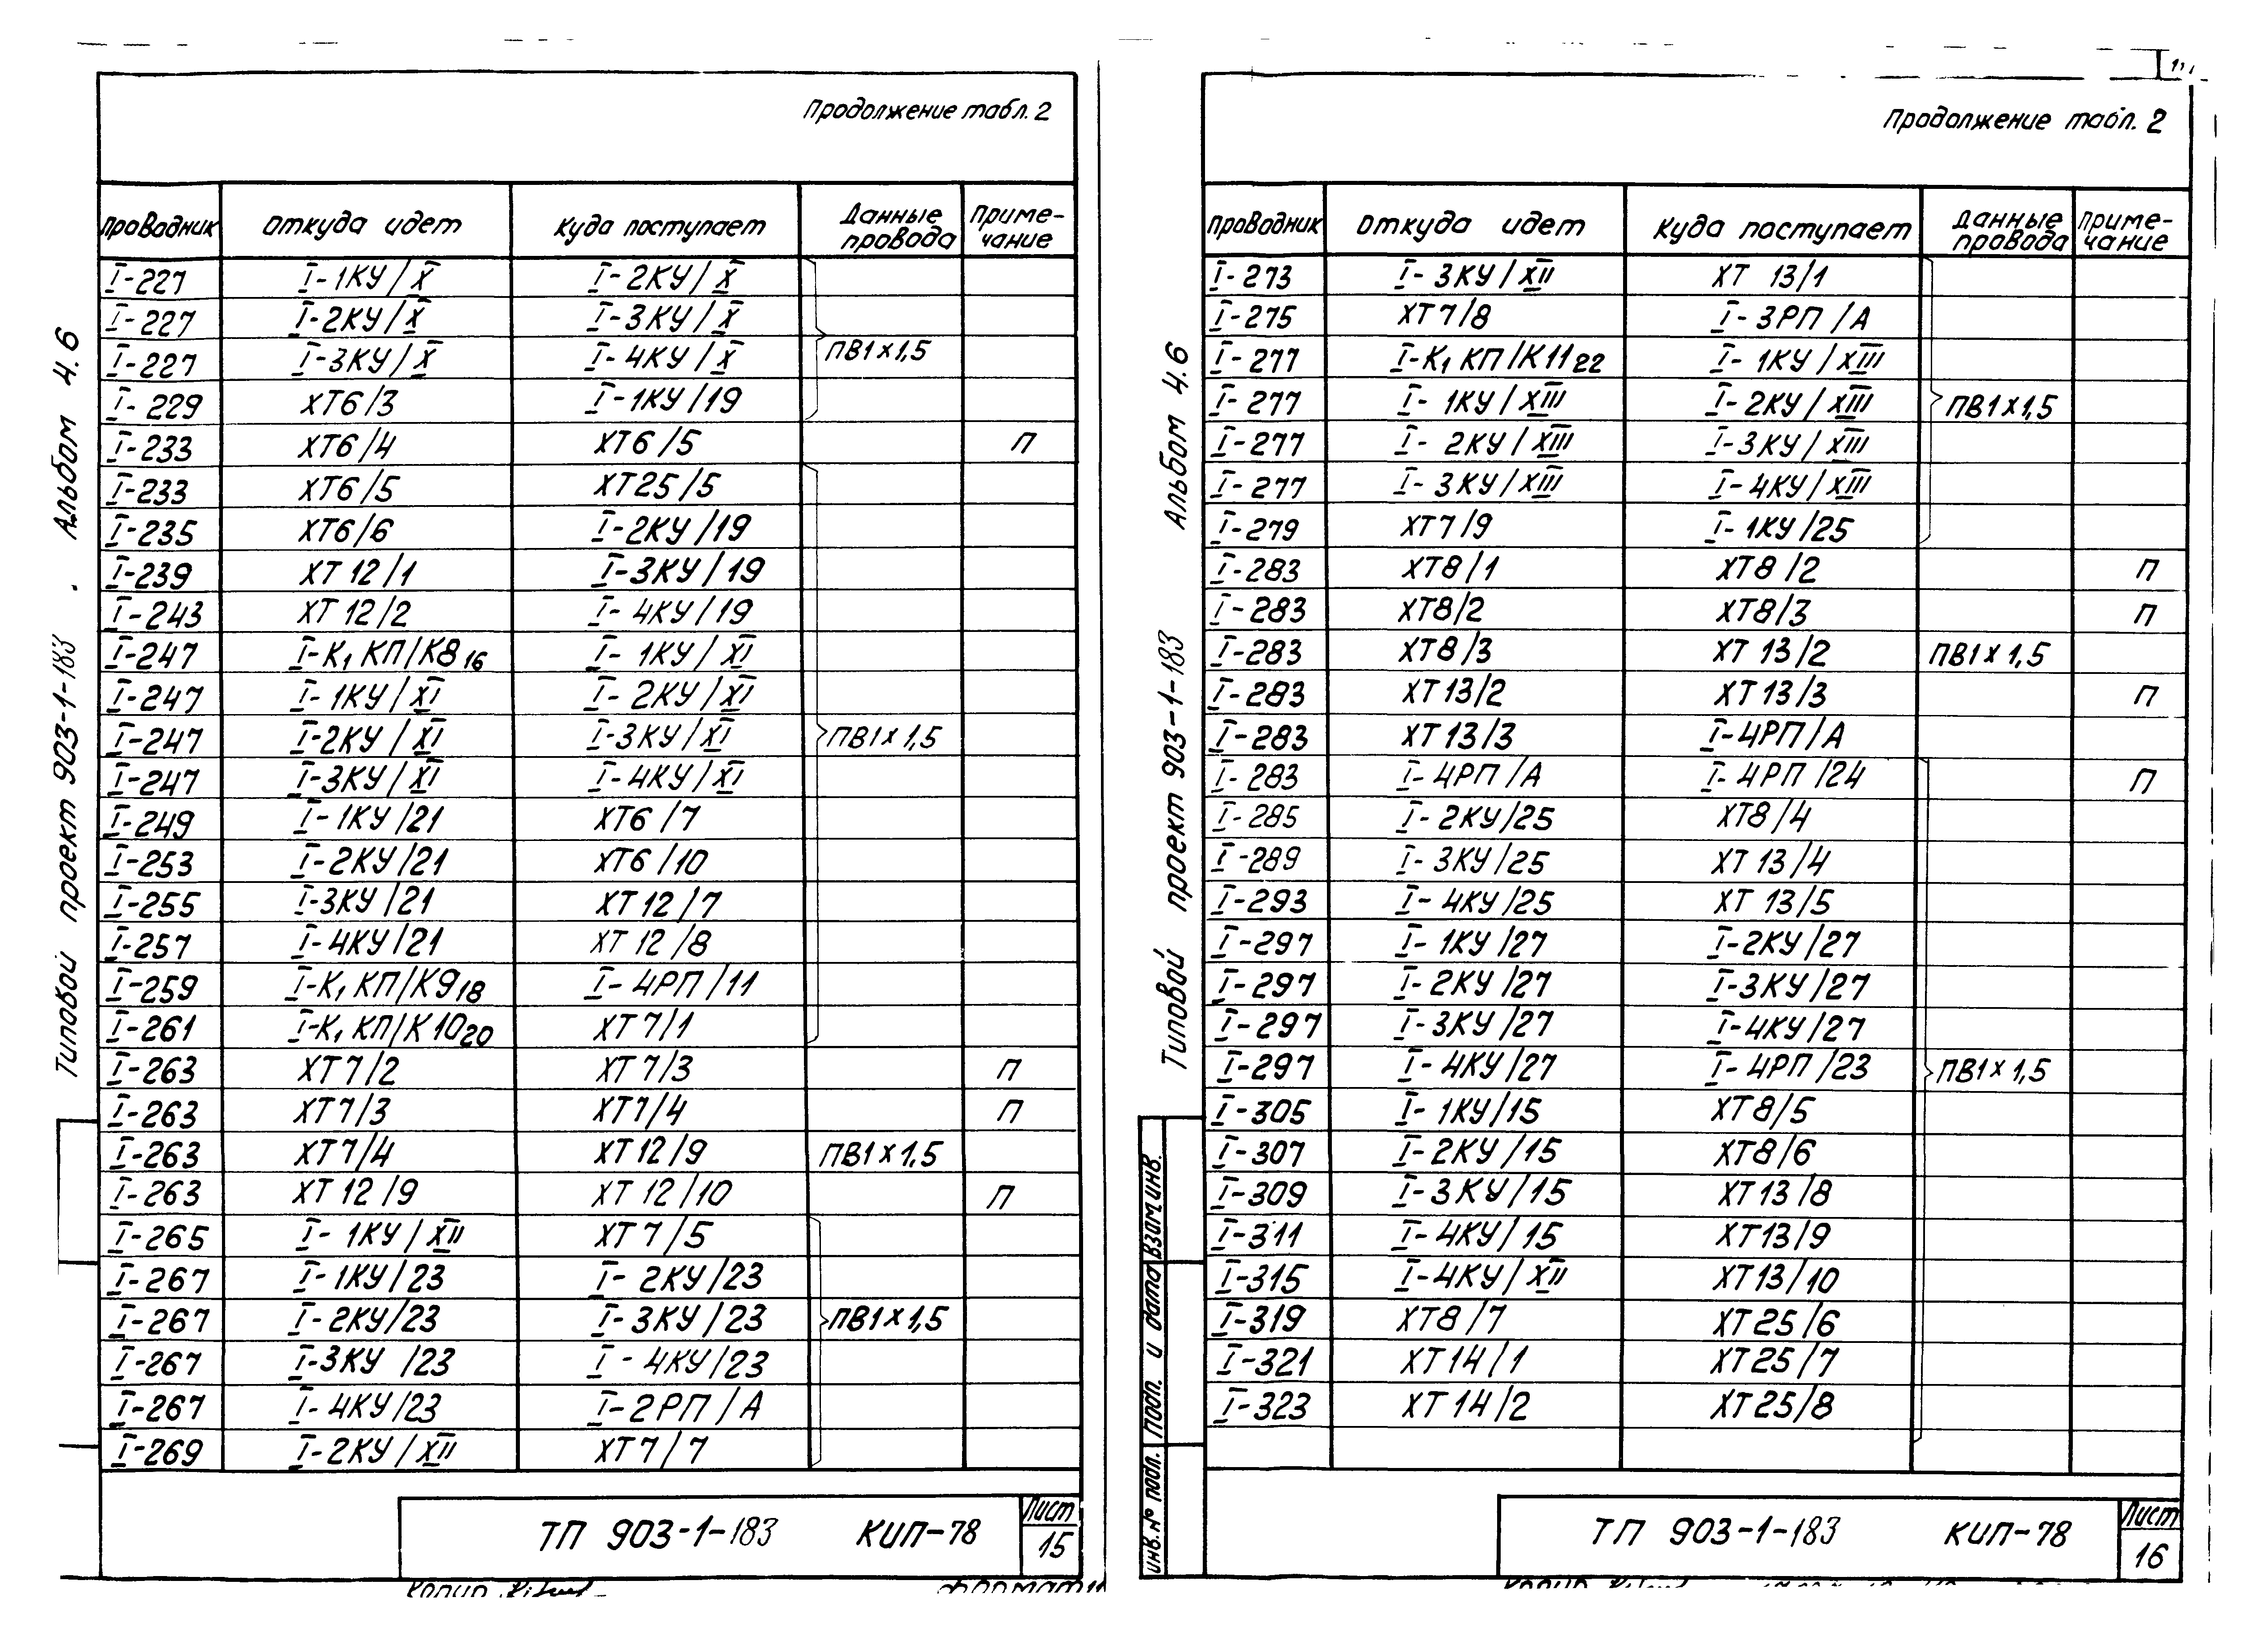 Продолжение табл. 2
Проводник Откуда идет Куда поступает Данные провода Приме-чание
I-227 I-1КУ/X I-2КУ/X
I-227 I-2КУ/X I-3КУ/X
I-227 I-3КУ/X I-4КУ/X ПВ1х1,5
I-229 ХТ6/3 I-1КУ/19
I-233 ХТ6/4 ХТ6/5 П
I-233 ХТ6/5 ХТ25/5
I-235 ХТ6/6 I-2КУ/19
I-239 ХТ12/1 I-3КУ/19
I-243 ХТ12/2 I-4КУ/19
I-247 I-К1 КП/К8 16 I-1КУ/XI
I-247 I-1КУ/XI I-2КУ/XI
I-247 I-2КУ/XI I-3КУ/XI ПВ1х1,5
I-247 I-3КУ/XI I-4КУ/XI
I-249 I-1КУ/21 ХТ6/7
I-253 I-2КУ/21 ХТ6/10
I-255 I-3КУ/21 ХТ12/7
I-257 I-4КУ/21 ХТ12/8
I-259 I-К1 КП/К9 18 I-4РП/11
I-261 I-К1 КП/К10 20 ХТ7/1
I-263 ХТ7/2 ХТ7/3 П
I-263 ХТ7/3 ХТ7/4 П
I-263 ХТ7/4 ХТ12/9 ПВ1х1,5
I-263 ХТ12/9 ХТ12/10 П
I-265 I-1КУ/XII ХТ7/5
I-267 I-1КУ/23 I-2КУ/23
I-267 I-2КУ/23 I-3КУ/23 ПВ1х1,5
I-267 I-3КУ/23 I-4КУ/23
I-267 I-4КУ/23 I-2РП/А
I-269 I-2КУ/XII ХТ7/7
Типовой проект 903-1-183 . Альбом 4.6
ТП 903-1-183 КИП-78
Лист
15
Копир.
Формат 11
Продолжение табл. 2
Проводник Откуда идет Куда поступает Данные провода Приме-чание
I-273 I-3КУ/XII ХТ 13/1
I-275 ХТ7/8 I-3РП/А
I-277 I-К1 КП/К11 22 I-1КУ/XIII
I-277 I-1КУ/XIII I-2КУ/XIII ПВ1х1,5
I-277 I-2КУ/XIII I-3КУ/XIII
I-277 I-3КУ/XIII I-4КУ/XIII
I-279 ХТ7/9 I-1КУ/25
I-283 ХТ8/1 ХТ8/2 П
I-283 ХТ8/2 ХТ8/3 П
I-283 ХТ8/3 ХТ 13/2 ПВ1х1,5
I-283 ХТ13/2 ХТ13/3 П
I-283 ХТ13/3 I-4РП/А
I-283 I-4РП/А I-4РП/24 П
I-285 I-2КУ/25 ХТ8/4
I-289 I-3КУ/25 ХТ 13/4
I-293 I-4КУ/25 ХТ 13/5
I-297 I-1КУ/27 I-2КУ/27
I-297 I-2КУ/27 I-3КУ/27
I-297 I-3КУ/27 I-4КУ/27
I-297 I-4КУ/27 I-4РП/23 ПВ1х1,5
I-305 I-1КУ/15 ХТ8/5
I-307 I-2КУ/15 ХТ8/6
I-309 I-3КУ/15 ХТ13/8
I-311 I-4КУ/15 ХТ13/9
I-315 I-4КУ/XII ХТ13/10
I-319 ХТ8/7 ХТ25/6
I-321 ХТ14/1 ХТ25/7
I-323 ХТ14/2 ХТ25/8
Типовой проект 903-1-183 Альбом 4.6
Инв. № подл. Подп. и дата Взам. инв.
ТП 903-1-183 КИП-78
Лист
16